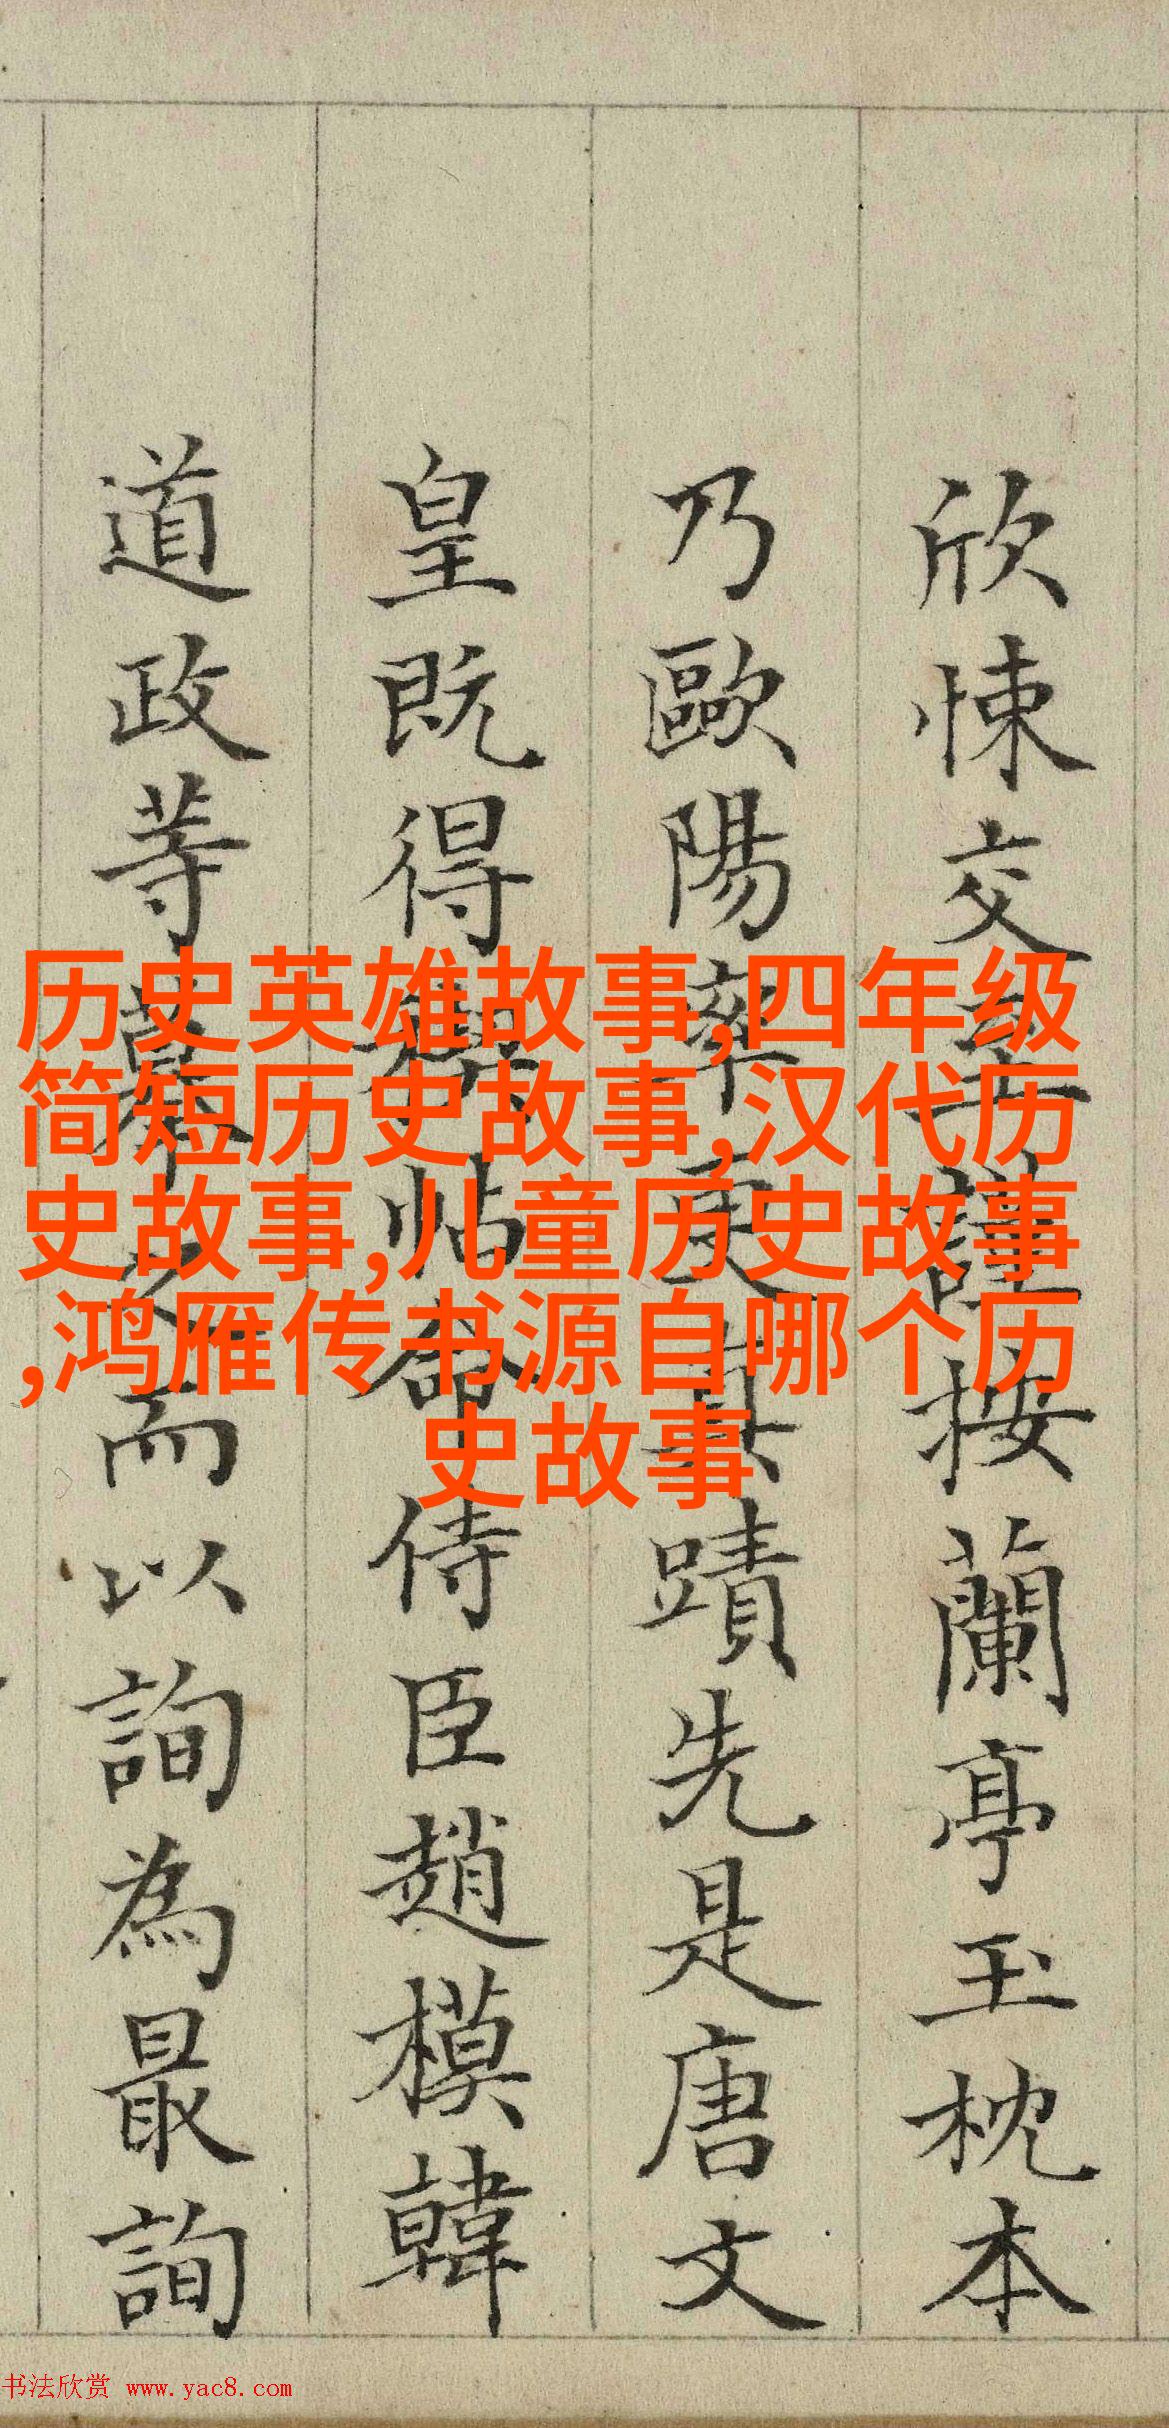 历史英雄故事,四年级
简短历史故事,汉代历
史故事,儿童历史故事
,鸿雁传书源自哪个历
史故事
欣悚交至謹按蘭亭玉枕本
乃歐陽率更真蹟先是唐文
皇既得帖命侍臣趙模韓
道政等摹之而以詢為最詢
书法欣赏 www.yac8.com